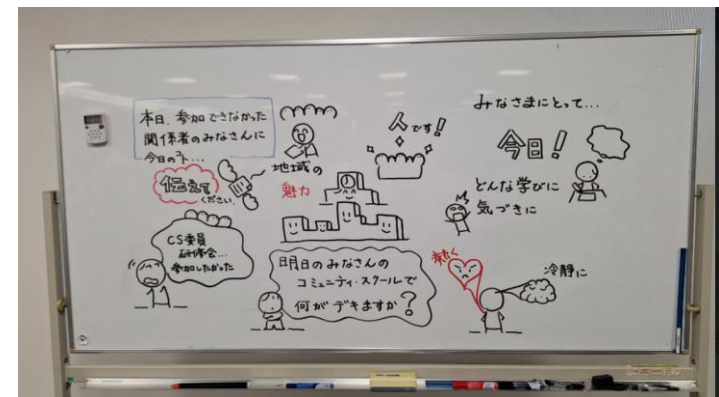 本日、参加できなかった
関係者のみなさんに
今日の
伝えて
ください
地域の
魅力
人です!
みなさまにとって...
今日!
どんな学びに
気づきに
CS委員
研修会...
参加したかった
明日のみなさんの
コミュニティ・スクールで
何がデキますか?
冷静に